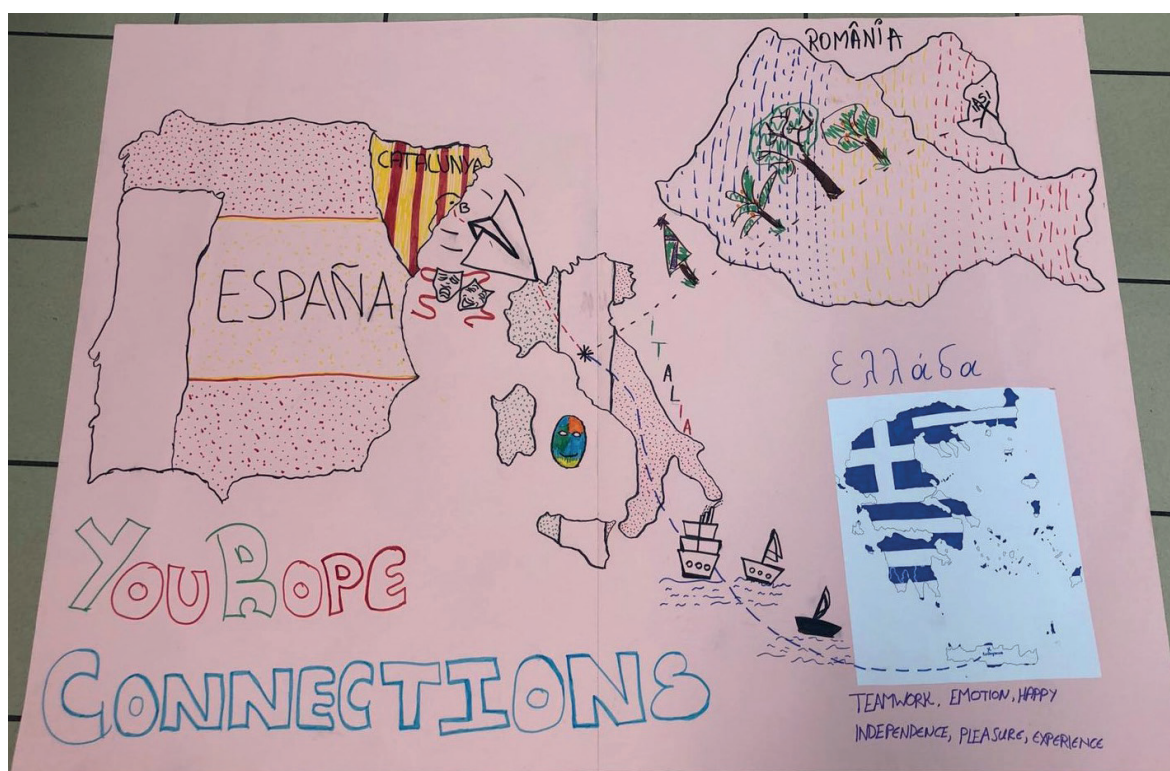 ROMÂNIA
IASI
CATALUNYA
B
ESPAÑA
ITALIA
Ελλάδα
YOUROPE
CONNECTIONS
TEAMWORK, EMOTION, HAPPY
INDEPENDENCE, PLEASURE, EXPERIENCE